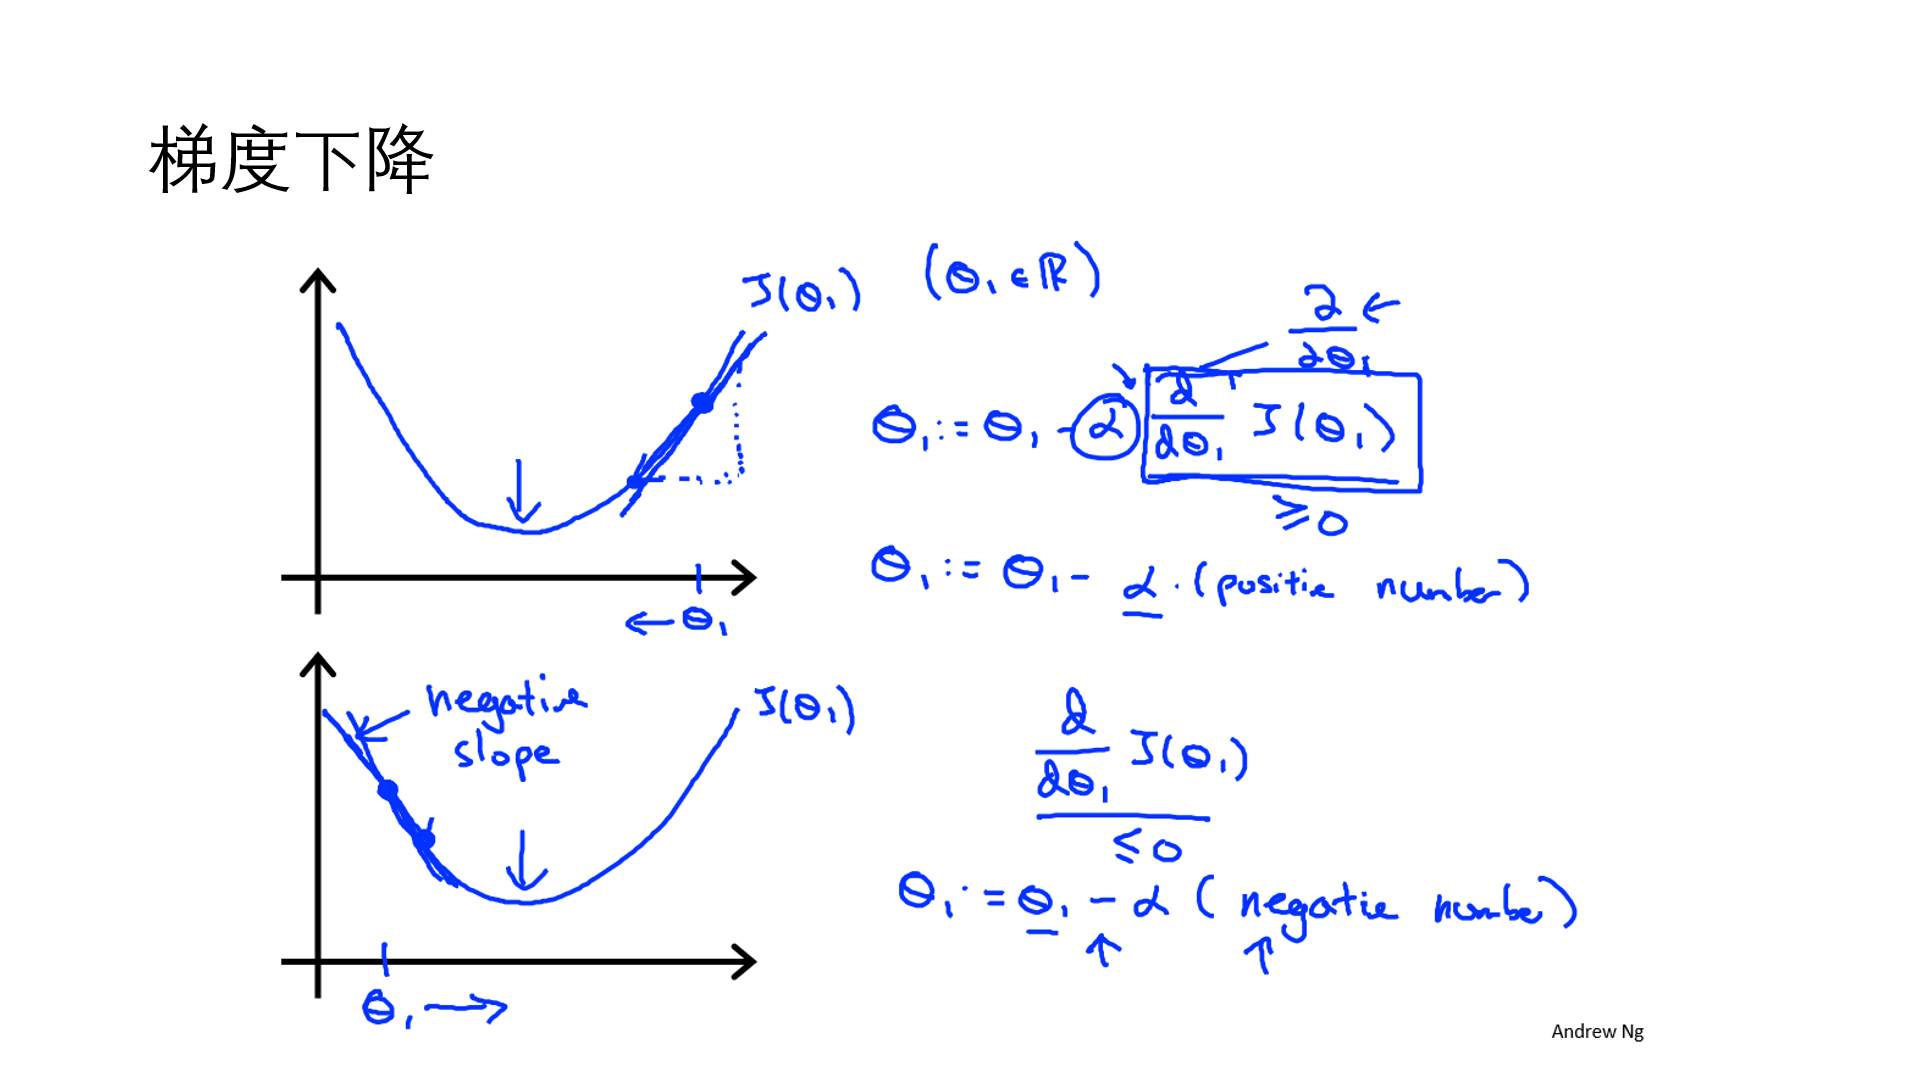 梯度下降
J(θ₁) (θ₁ ∈ ℝ)
∂/∂θ₁ ←
θ₁ := θ₁ - α d/dθ₁ J(θ₁)
≥ 0
θ₁ := θ₁ - α · (positie number)
← θ₁
negative slope
J(θ₁)
d/dθ₁ J(θ₁)
≤ 0
θ₁ := θ₁ - α (negatie number)
θ₁ →
Andrew Ng